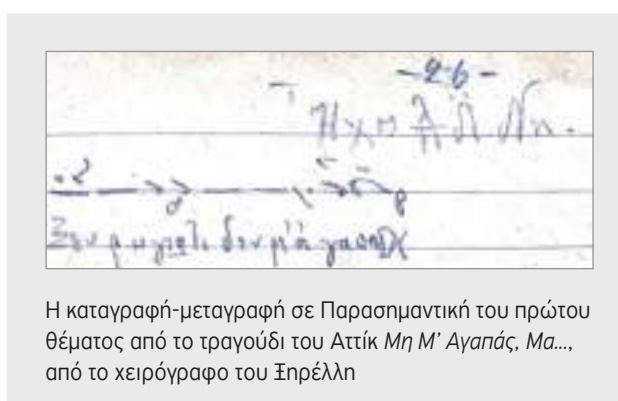 -26-
Ηχο
Η καταγραφή-μεταγραφή σε Παρασημαντική του πρώτου
θέματος από το τραγούδι του Αττίκ Μη Μ' Αγαπάς, Μα...,
από το χειρόγραφο του Ξηρέλλη